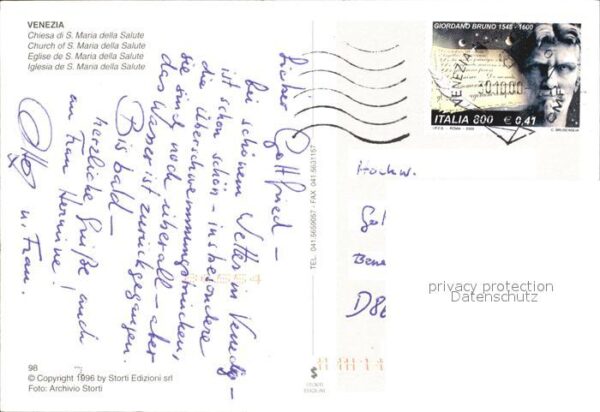 VENEZIA
Chiesa di S. Maria della Salute
Church of S. Maria della Salute
Eglise de S. Maria della Salute
Iglesia de S. Maria della Salute
Lieber Gottfried –
bei schönem Wetter in Venedig –
ist schon schön – insbesondere
die Überschwemmungsbrücken,
sie sind noch überall – aber
das Wasser ist zurückgegangen.
Bis bald –
herzliche Grüße, auch
an Frau Hermine!
Otto
u. Frau.
98
© Copyright 1996 by Storti Edizioni srl
Foto: Archivio Storti
TEL. 041.5659057 - FAX 041.5631157
GIORDANO BRUNO 1548 - 1600
VENEZIA
10.10.00
ITALIA 800 € 0,41
I.P.Z.S. - ROMA - 2000
Hochw.
D86
privacy protection
Datenschutz